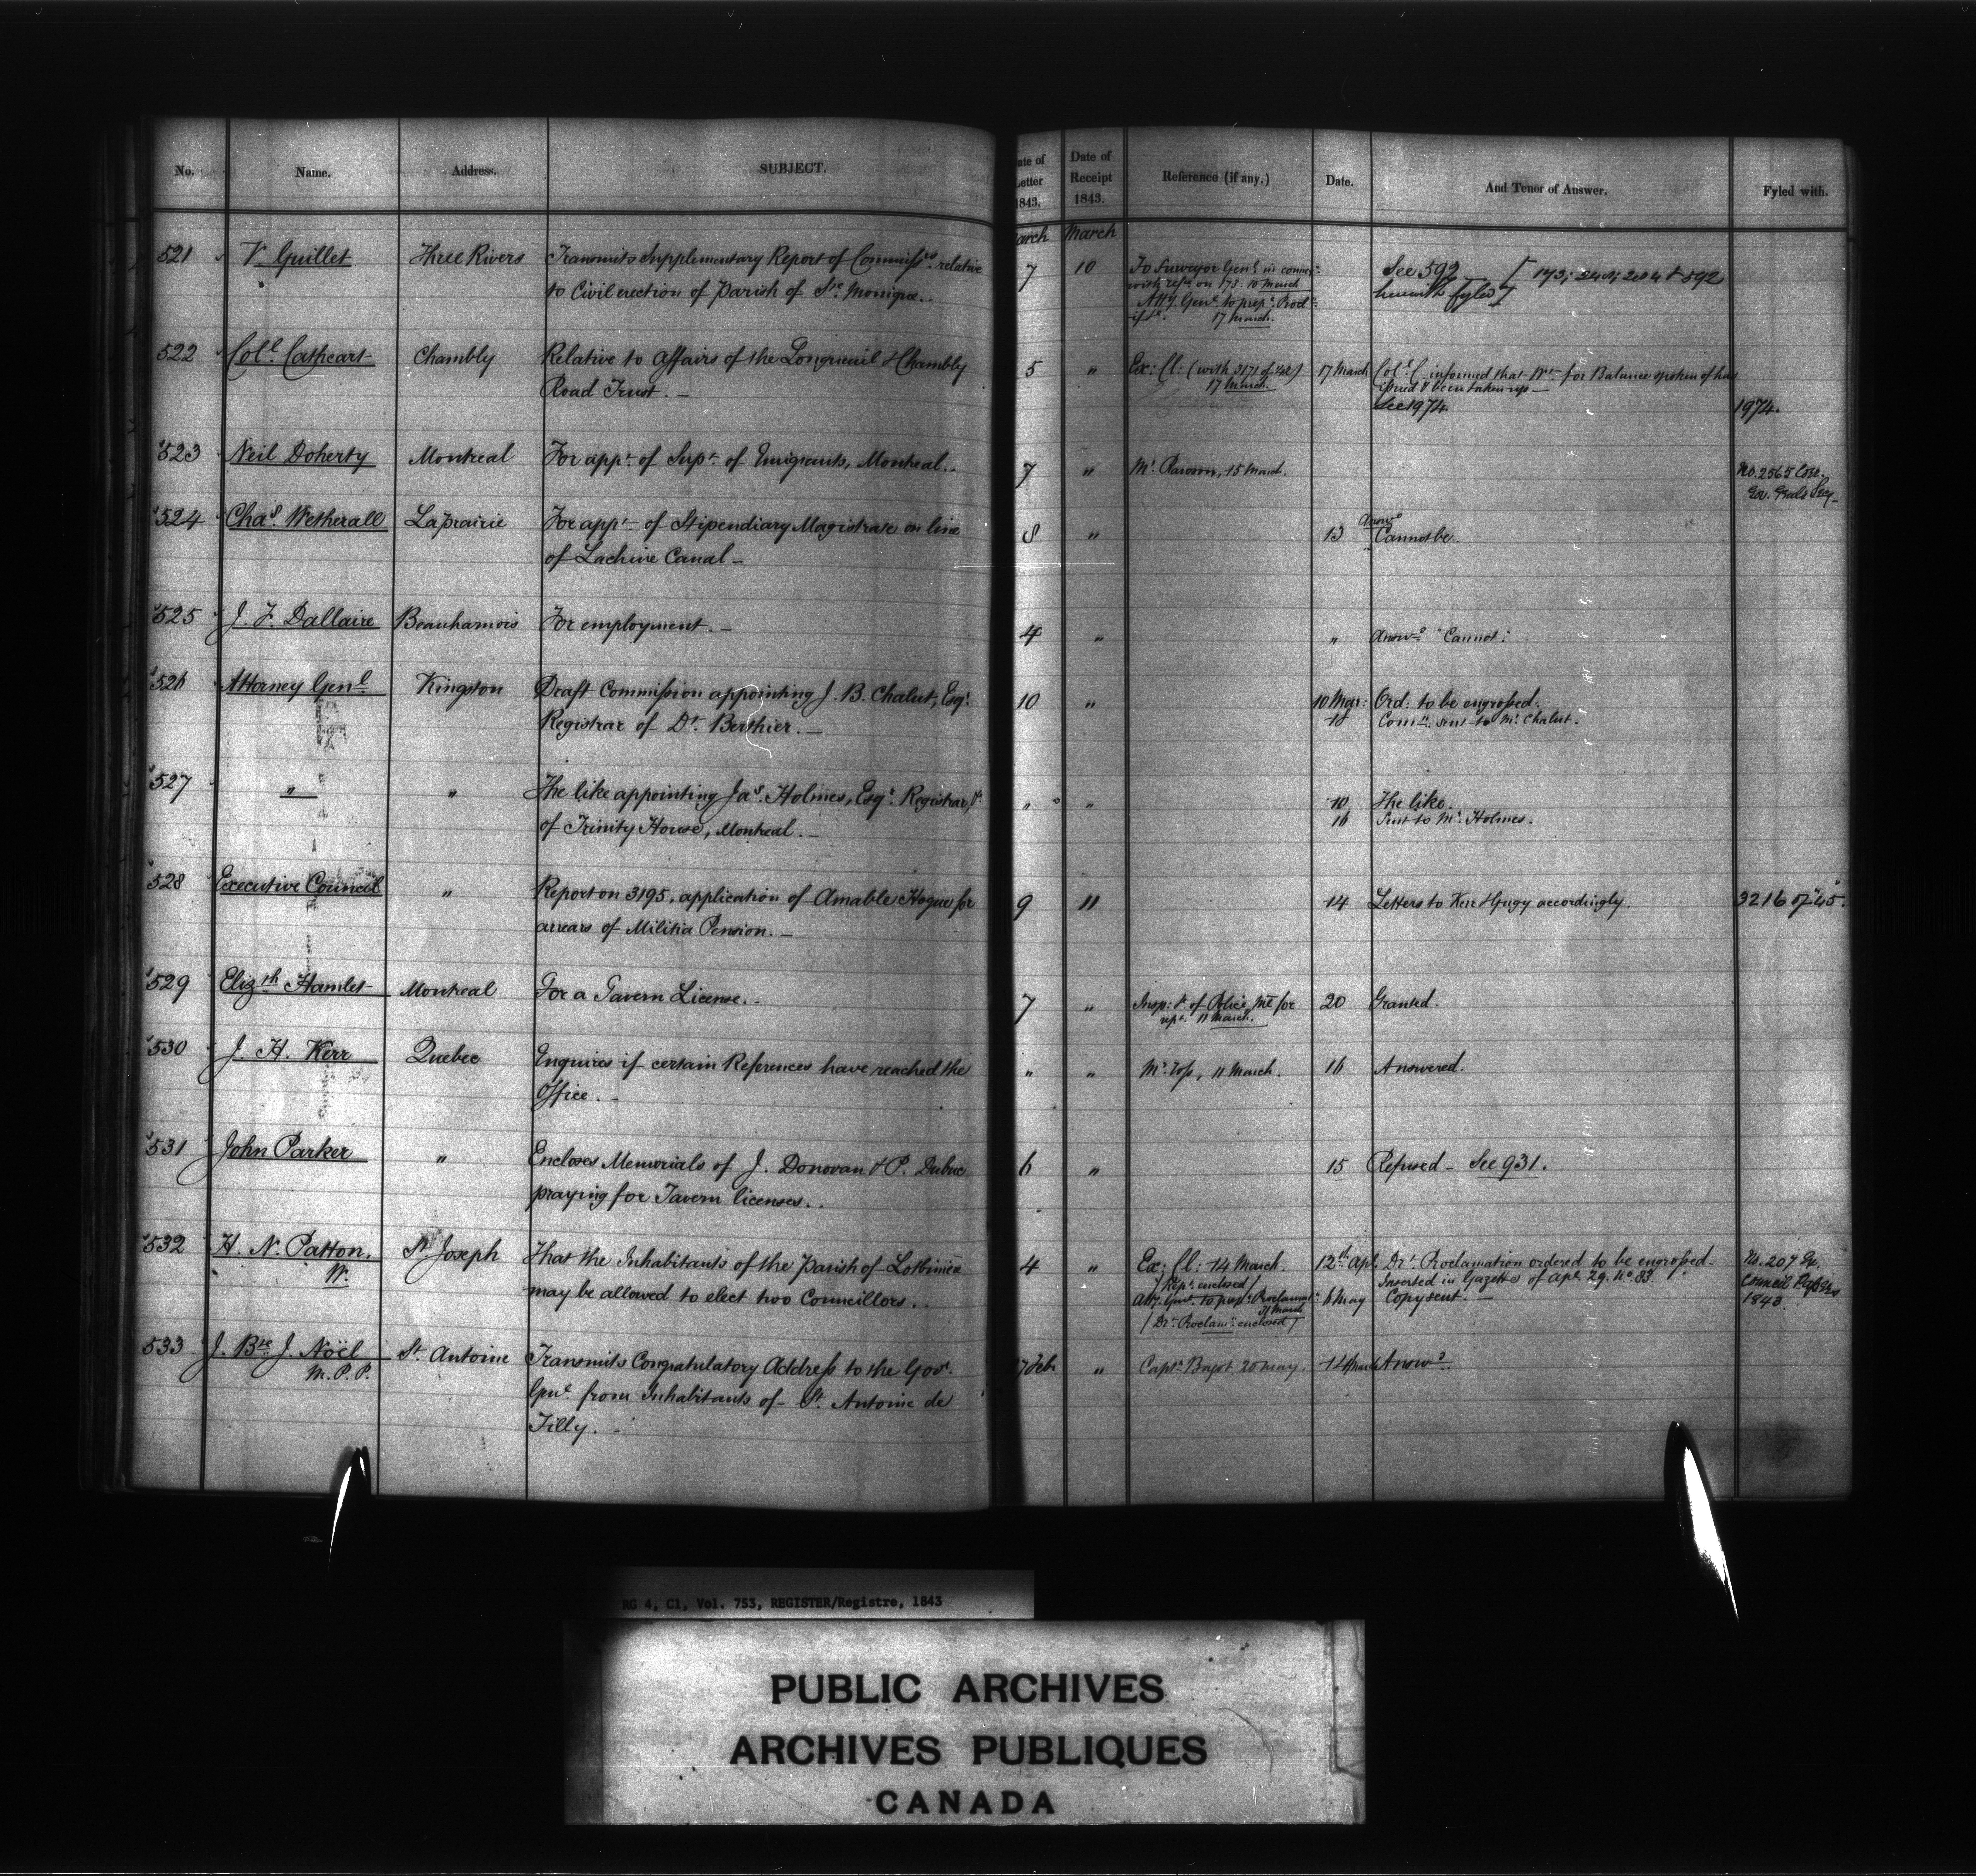 No. Name. Address. SUBJECT. ate of etter 1843. Date of Receipt 1843. Reference (if any.) Date. And Tenor of Answer. Fyled with.
arch March
521 V. Guillet Three Rivers Transmits Supplementary Report of Commissrs. relative 7 10 To Surveyor Genl. in connen. See 592 [173; 2404 & 592
to Civil erection of Parish of Ste. Monique. with refce. on 173. 10 March herewith fyled]
Atty. Genl. to prepe. Procln.
17 March.
522 Coll. Cathcart Chambly Relative to affairs of the Longueuil & Chambly 5 " Ex: Cl: (with 3171 of '42) 17 March Coll. C. informed that Wt. for Balance spoken of has
Road Trust. 17 March. issued & been taken up
See 1974. 1974.
523 Neil Doherty Montreal For appt. of Supt. of Emigrants, Montreal. 7 " Mr. Rawson, 15 March. No. 2565
Gov. Genls Secy
524 Chas. Wetherall Laprairie For appt. of Stipendiary Magistrate on line 8 " 13 Answd. Cannot be.
of Lachine Canal
525 J. F. Dallaire Beauharnois For employment. 4 " " Answd. "Cannot."
526 Attorney Genl. Kingston Draft Commission appointing J. B. Chalut, Esqr. 10 " 10 Mar: Ord: to be engrossed.
Registrar of Dt. Berthier. 18 Comn. sent to Mr. Chalut.
527 " " The like appointing Jas. Holmes, Esqr. Registrar, &c. " " 10 The like.
of Trinity House, Montreal. 16 Sent to Mr. Holmes.
528 Executive Council " Report on 3195, application of Amable Hogue for 9 11 14 Letters to Kerr & Gugy accordingly. 3216 of '45.
arrears of Militia Pension.
529 Elizth Hamlet Montreal For a Tavern License. 7 " Insp: &c. of Police, Ml for 20 Granted.
rept. 11 March.
530 J. H. Kerr Quebec Enquires if certain References have reached the " " Mr. , 11 March. 16 Answered.
Office.
531 John Parker " Encloses Memorials of J. Donovan & P. Dubuc 6 " 15 Refused - See 931.
praying for Tavern licenses.
532 H. N. Patton, St. Joseph That the Inhabitants of the Parish of Lotbinière 4 " Ex: Cl: 14 March. 12th Apl. Dft. Proclamation ordered to be engrossed. No. 207 Ex.
W. may be allowed to elect two Councillors. (Rept. enclosed) Inserted in Gazette of Apl. 29. No 83. Council Papers
Atty. Genl. to prepe. Proclamn. 31 March 6 May Copy sent. 1843.
(Dt. Proclamn. enclosed)
533 J. Bte. J. Noël St. Antoine Transmits Congratulatory Address to the Govr. 7 Feb. " Captn. Bagot 20 May. 14 March Answd.
M.P.P. Genl. from Inhabitants of St. Antoine de
Tilly.
RG 4, C1, Vol. 753, REGISTER/Registre, 1843
PUBLIC ARCHIVES
ARCHIVES PUBLIQUES
CANADA